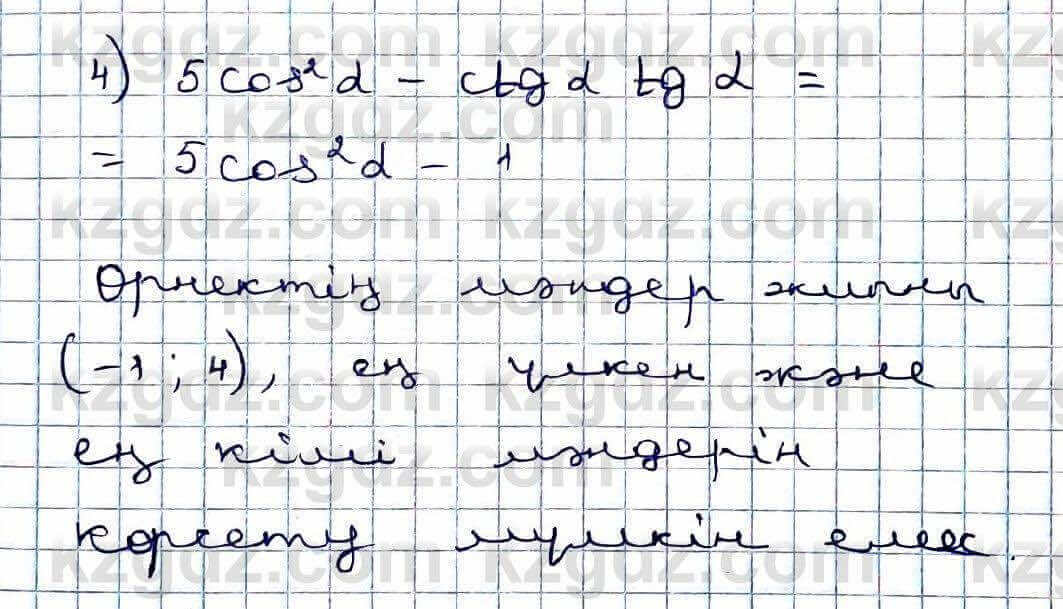 4) 5cos²α - ctgα tgα =
= 5cos²α - 1
Өрнектің мәндер жиыны
(-1; 4), ең үлкен және
ең кіші мәндерін
көрсету мүмкін емес.
kzgdz.com